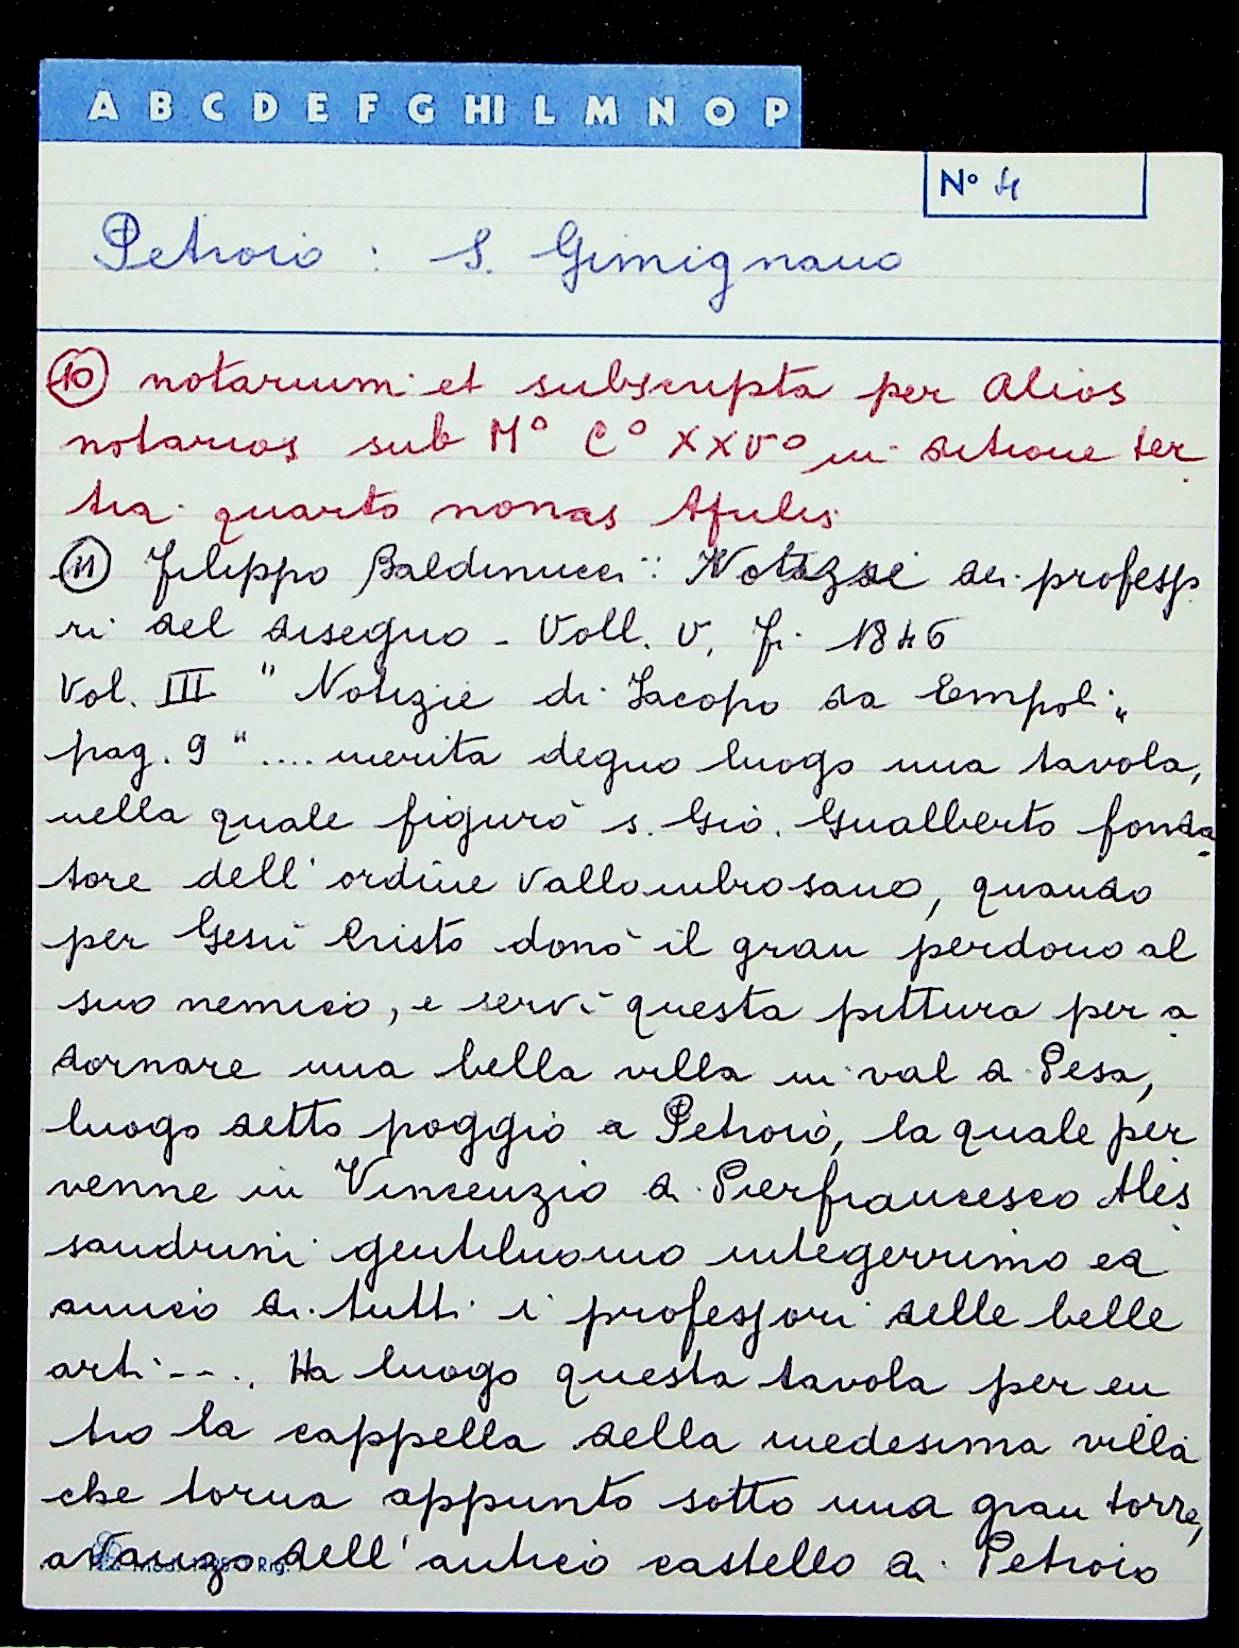 A B C D E F G HI L M N O P
N° 4
Petroio : S. Gimignano
⑩ notarium et subscripta per alios
notarios sub M° C° XXV° in ditione ter
tia quarto nonas Apulis
⑪ Filippo Baldinucci : Notizie dei professo
ri del disegno - Voll. V, Fi 1846
Vol. III " Notizie di Jacopo da Empoli „
pag. 9 " .... merita degno luogo una tavola,
nella quale figurò s. Giò. Gualberto fonda
tore dell'ordine Vallombrosano, quando
per Gesù Cristo donò il gran perdono al
suo nemico, e servì questa pittura per a
dornare una bella villa in val di Pesa,
luogo detto poggio a Petroio, la quale per
venne in Vincenzio di Pierfrancesco Ales
sandrini gentiluomo integerrimo ed
amico di tutti i professori delle belle
arti --.. Ha luogo questa tavola per en
tro la cappella della medesima villa
che torna appunto sotto una gran torre,
avanzo dell'antico castello di Petroio